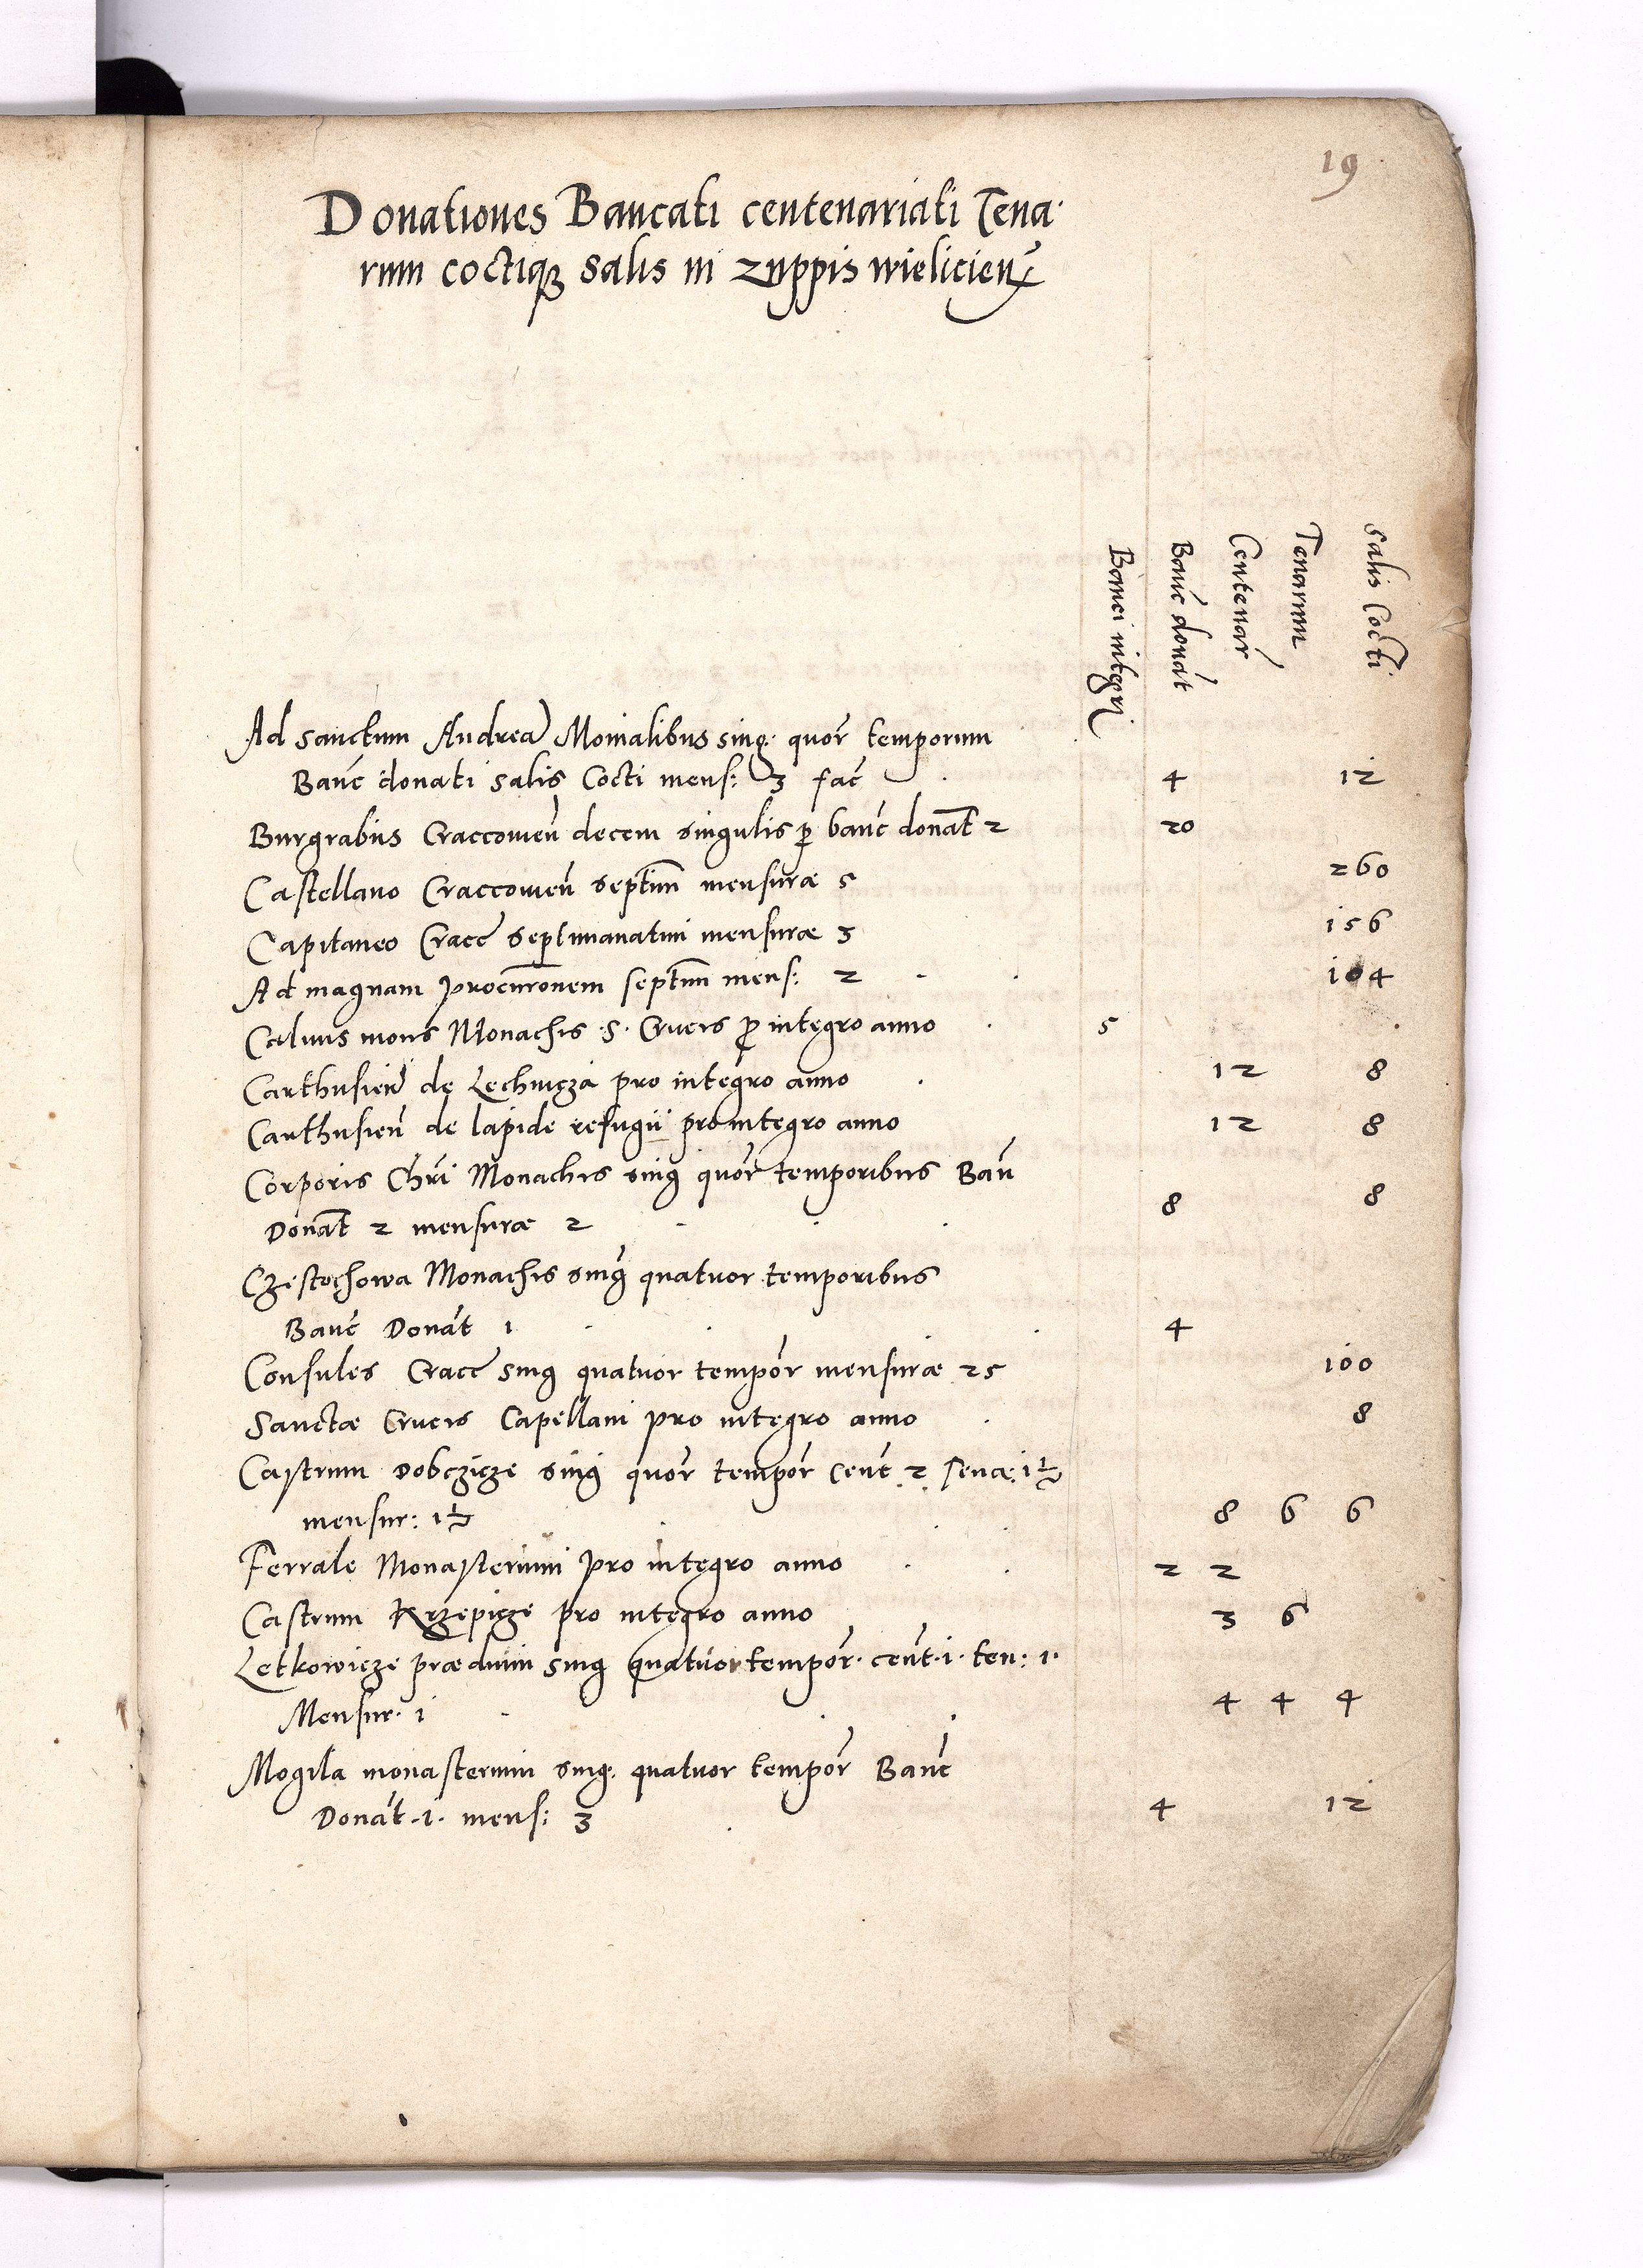 19
Donationes Bancati centenariati Tena
rum coctiqȝ salis in zuppis wielicień
Banci integri
Banć donát
Centenar̃
Tenarum
Salis Cocti
Ad sanctum Andreā Monialibus sing: quor̃ temporum
Banć donati salis Cocti mens: 3 fać 4 12
Burgrabiis Craccovień decem singulis p̱ banć donat̃ 2 20
Castellano Craccovień septim̃ mensuræ 5 260
Capitaneo Cracć septimanatim mensuræ 3 156
Ad magnam procur̃onem septim̃ mens: 2 104
Calvus mons Monachis .S. Crucis p̱ integro anno 5
Carthusień de Lechnicza pro integro anno 12 8
Carthusień de lapide refugii pro integro anno 12 8
Corporis Chr̃i Monachis sing quor̃ temporibus Bań
Donat̃ 2 mensuræ 2 8 8
Częstochowa Monachis sing̃ quatuor temporibus
Banć Donát 1 4
Consules Cracć sing quatuor tempor̃ mensuræ 25 100
Sanctæ Crucis Capellani pro integro anno 8
Castrum Dobczicze sing̃ quor̃ tempor̃ Cent́ 2 Tenæ: 1½
mensur: 1½ 8 6 6
Ferrale Monasterium pro integro anno 2 2
Castrum Krzepicze pro integro anno 3 6
Letkowicze prædium sing quatuor tempor̃. cent́. 1. ten: 1.
Mensur. 1 4 4 4
Mogila monasterium sing. quatuor tempor̃ Banć
Donát .1. mens: 3 4 12